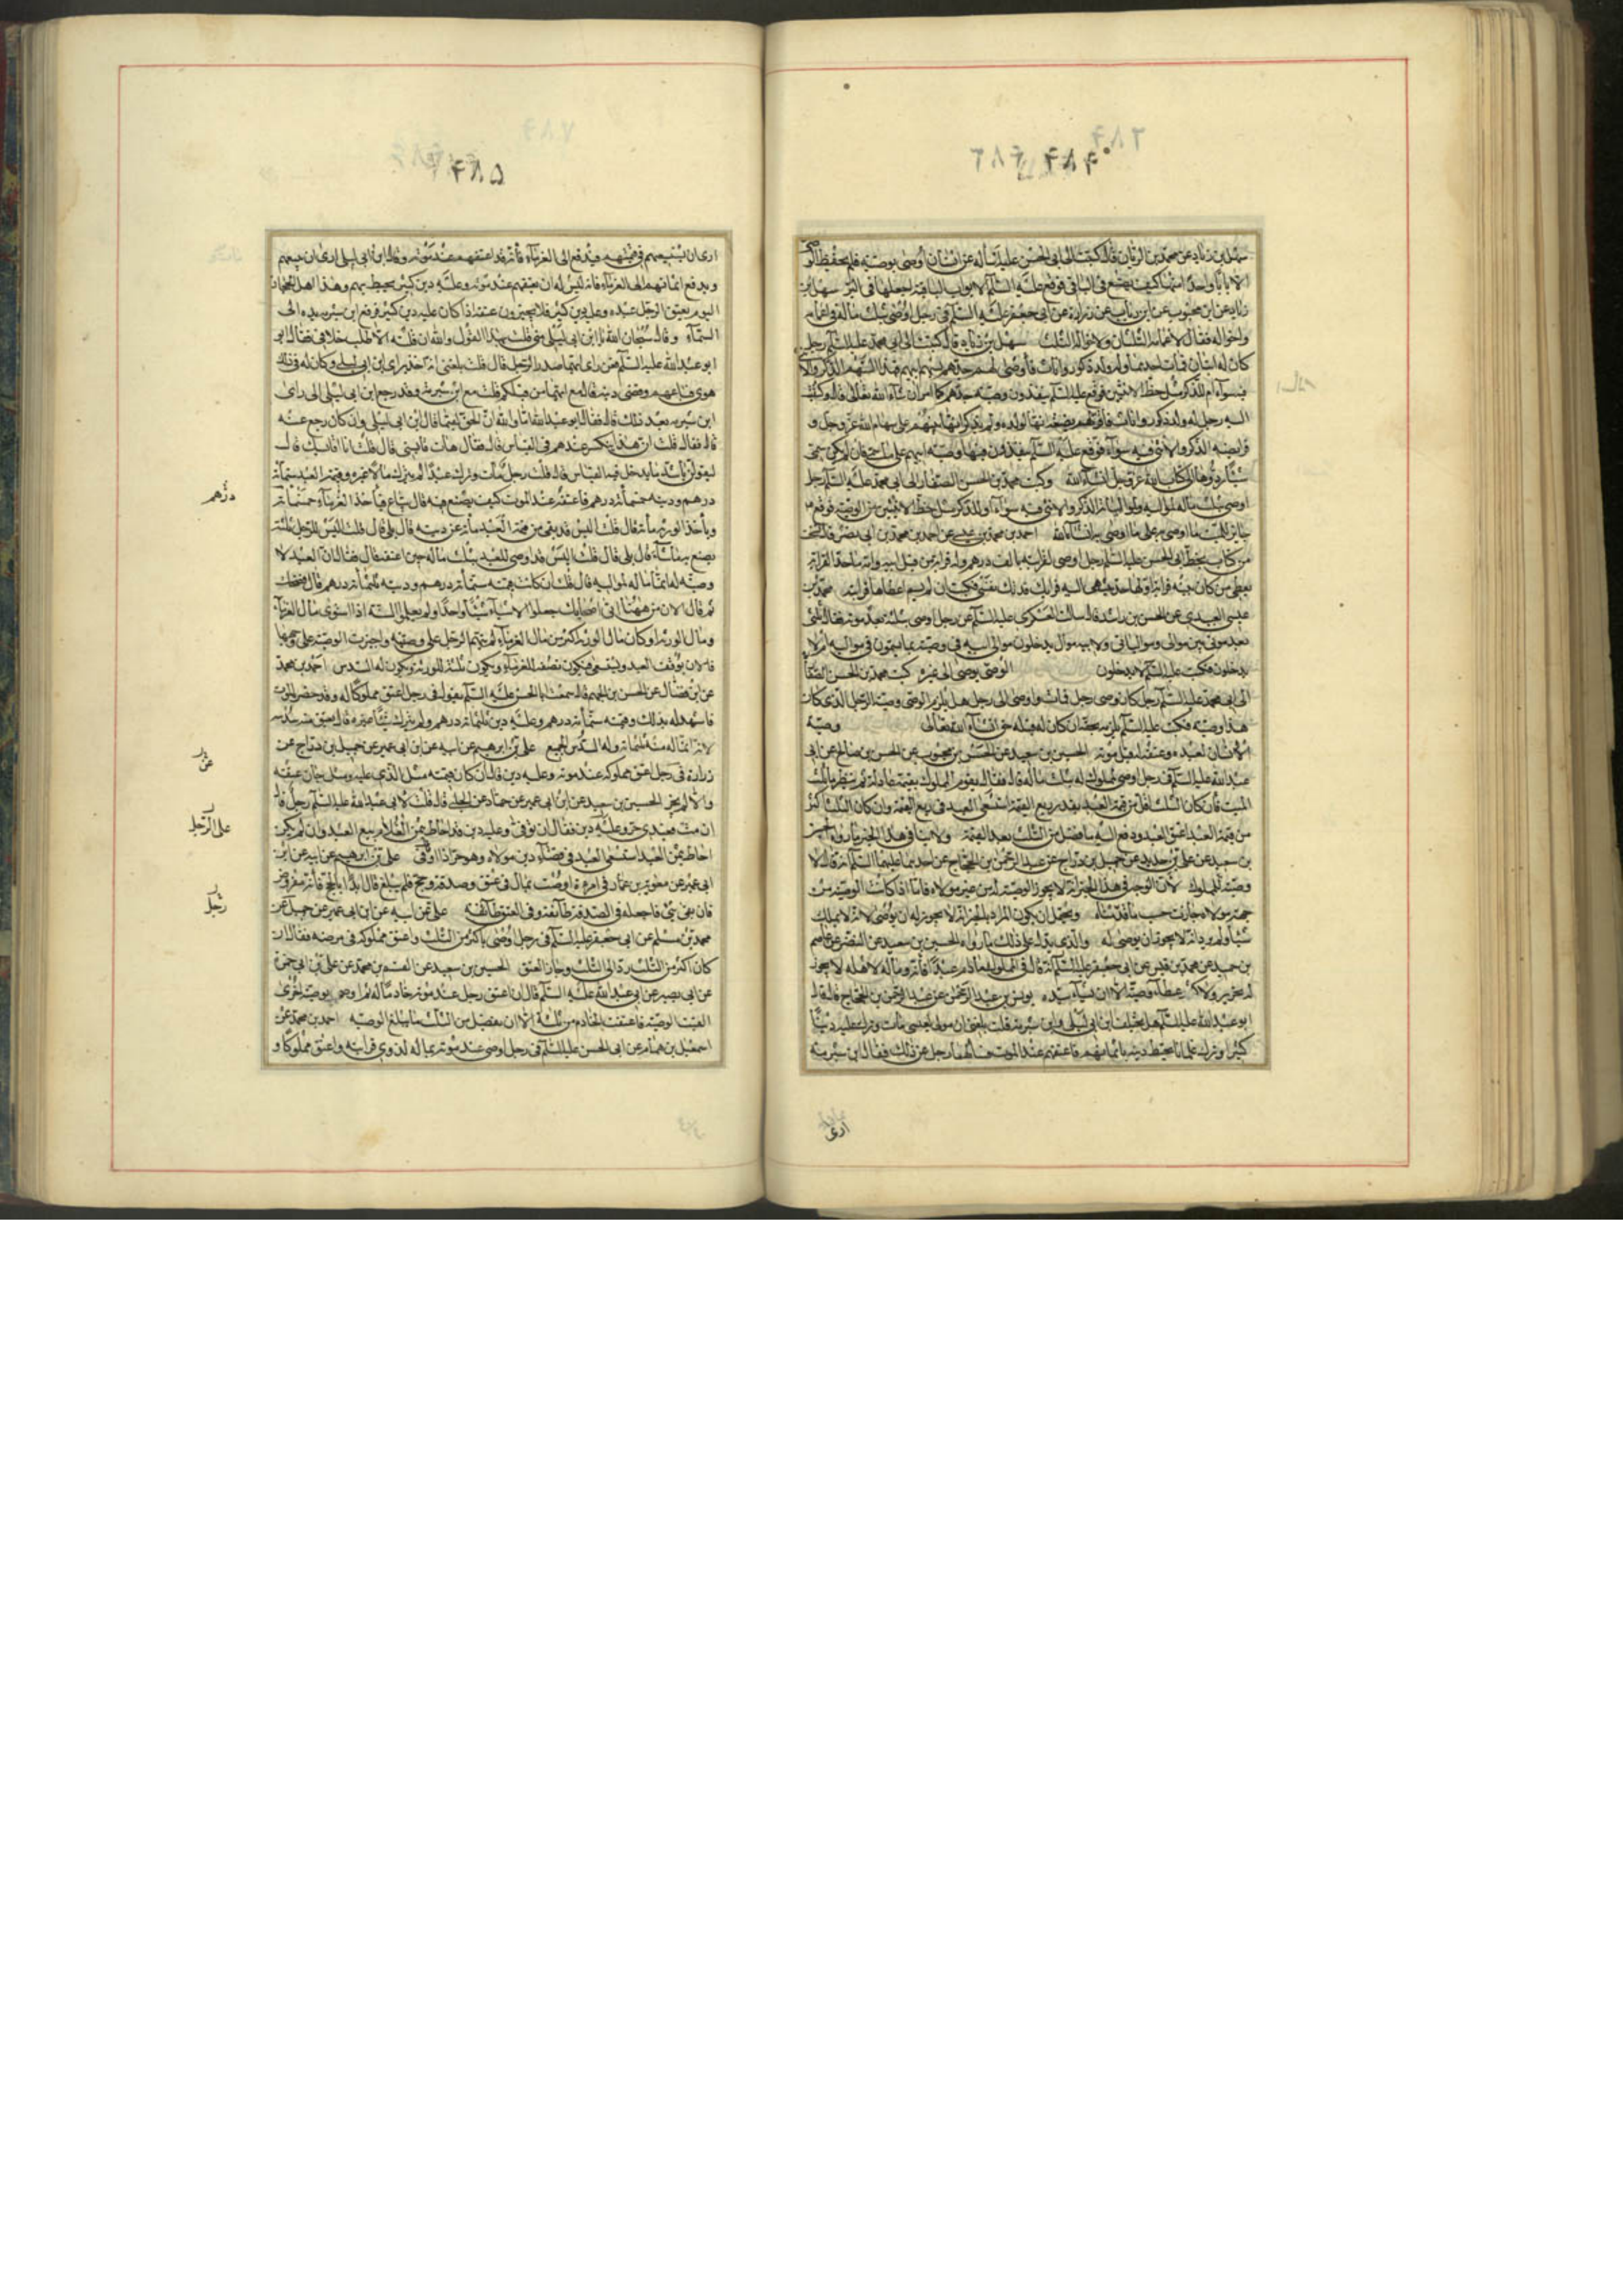 سهل بن زياد عن محمد بن الريان قال كتبت الى ابى الحسن عليه السلم اساله عن انسان اوصى بوصية فلم يحفظ الوصى
الا بابا واحدا منها كيف يصنع فى الباقى فوقع عليه السلم الابواب الباقية اجعلها فى البر سهل بن
زياد عن ابن محبوب عن ابن رياب عن زرارة عن ابى جعفر عليه السلم فى رجل اوصى بثلث ماله فى اعمامه
واخواله فقال لاعمامه الثلثان ولاخواله الثلث سهل بن زياد قال كتبت الى ابى محمد عليه السلم رجل
كان له ابنان فمات احدهما وله ولد ذكور واناث فاوصى لهم جدهم بسهم ابيهم فهذا السهم الذكر والانثى
فيه سواء ام للذكر مثل حظ الانثيين فوقع عليه السلم ينفذون وصية جدهم كما امر ان شاء الله تعالى قال وكتبت
اليه رجل له ولد ذكور واناث فاقر لهم بضيعة انها لولده ولم يذكر انها بينهم على سهام الله عز وجل و
فرايضه الذكر والانثى فيه سواء فوقع عليه السلم ينفذون فيها وصية ابيهم على ما سمى فان لم يكن سمى
شيئا ردوها الى كتاب الله عز وجل ان شاء الله وكتب محمد بن الحسن الصفار الى ابى محمد عليه السلم رجل
اوصى بثلث ماله لمواليه ولمولياته الذكر والانثى فيه سواء او للذكر مثل حظ الانثيين من الوصية فوقع ع
جايز للميت ما اوصى به على ما اوصى به ان شاء الله احمد بن محمد بن عيسى عن احمد بن محمد بن ابى نصر قال نسخت
من كتاب بخط ابى الحسن عليه السلم رجل اوصى لقرابته بالف درهم وله قرابة من قبل ابيه وامه ما حد القرابة
يعطى من كان بينه قرابة او لها حد ينتهى اليه فرايك فدتك نفسى فكتب ان لم يسم اعطاها قرابته محمد بن
عيسى العبيدى عن الحسن بن راشد قال سالت العسكرى عليه السلم عن رجل اوصى بثلثه بعد موته فقال ثلثى
بعد موتى بين موالى وموالياتى ولابيه موال يدخلون موالى ابيه فى وصيته بما يسمون فى مواليه ام لا
يدخلون فكتب عليه السلم لا يدخلون الوصى يوصى الى غيره كتب محمد بن الحسن الصفار
الى ابى محمد عليه السلم رجل كان وصى رجل فمات واوصى الى رجل هل يلزم الوصى وصية الرجل الذى كان
هذا وصيه فكتب عليه السلم يلزمه بحقه ان كان له قبله حق ان شاء الله تعالى وصية
الانسان لعبده وعتقه له قبل موته الحسين بن سعيد عن الحسن بن محبوب عن الحسن بن صالح عن ابى
عبد الله عليه السلم فى رجل اوصى لمملوك له بثلث ماله قال فقال يقوم المملوك بقيمة عادلة ثم ينظر ما ثلث
الميت فان كان الثلث اقل من قيمة العبد بقدر ربع القيمة استسعى العبد فى ربع القيمة وان كان الثلث اكثر
من قيمة العبد اعتق العبد ودفع اليه ما فضل من الثلث بعد القيمة ولا ينافى هذا الخبر ما رواه الحسين
بن سعيد عن على بن حديد عن جميل بن دراج عن عبد الرحمن بن الحجاج عن احدهما عليهما السلم انه قال لا
وصية لمملوك لان الوجه فى هذا الخبر انه لا يجوز الوصية له من غير مولاه فاما اذا كانت الوصية من
جهة مولاه جازت حسب ما قدمناه ويحتمل ان يكون المراد بالخبر انه لا يجوز له ان يوصى لانه لا يملك
شيئا ولم يرد انه لا يجوز ان يوصى له والذى يدل على ذلك ما رواه الحسين بن سعيد عن النضر عن عاصم
بن حميد عن محمد بن قيس عن ابى جعفر عليه السلم انه قال فى المملوك ما دام عبدا فانه وماله لاهله لا يجوز
له تحرير ولا كثير عطاء ولا وصية الا ان يشاء سيده يونس بن عبد الرحمن عن عبد الرحمن بن الحجاج قال قال
ابو عبد الله عليه السلم هل يختلف ابن ابى ليلى وابن شبرمة قلت بلغنى ان مولى لعيسى مات وترك عليه دينا
كثيرا وترك غلمانا يحيط دينه باثمانهم فاعتقهم عند الموت فسالهما رجل عن ذلك فقال ابن شبرمة
ارى
ارى ان يستسعيهم فى قيمتهم فيدفع الى الغرماء فانه قد اعتقهم عند موته وقال ابن ابى ليلى ارى ان يبيعهم
ويدفع اثمانهم الى الغرماء فانه ليس له ان يعتقهم عند موته وعليه دين كثير يحيط بهم وهذا اهل الحجاز
اليوم يعتق الرجل عبده وعليه دين كثير فلا يجيزون عتقه اذا كان عليه دين كثير فرفع ابن شبرمة يده الى
السماء وقال سبحان الله يا ابن ابى ليلى متى قلت بهذا القول والله ان قلته الا طلب خلافى فقال لى
ابو عبد الله عليه السلم فعن راى ايهما صدر الرجل قال قلت بلغنى انه اخذ براى ابن ابى ليلى وكان له فى ذلك
هوى فباعهم وقضى دينه قال فمع ايهما من قبلكم قلت مع ابن شبرمة وقد رجع ابن ابى ليلى الى راى
ابن شبرمة بعد ذلك قال فقال ابو عبد الله اما والله ان الحق لفيما قال ابن ابى ليلى وان كان رجع عنه
قال فقال قلت ان هذا ينكسر عندهم فى القياس قال فقال هات قايسنى قال قلت انا اقايسك قال
لتقولن باشد ما يدخل فيه القياس قال قلت رجل مات وترك عبدا لم يترك مالا غيره وقيمة العبد ستمائة
درهم ودينه خمسمائة درهم فاعتقه عند الموت كيف يصنع فيه قال يباع فياخذ الغرماء خمسمائة
درهم
وياخذ الورثة مائة قال قلت اليس قد بقى من قيمة العبد مائة عن دينه قال بلى قال قلت اليس للرجل ثلثه
يصنع به ما شاء قال بلى قال قلت اليس قد اوصى للعبد بثلث ماله حين اعتقه فقال ان العبد لا
وصية له انما ماله لمواليه قال قلت ان كانت قيمته ستمائة درهم ودينه ثلثمائة درهم قال فضحك
ثم قال الان من ههنا اتى اصحابك جعلوا الاشياء شيئا واحدا ولم يعلموا السنة اذا استوى مال الغرماء
ومال الورثة او كان مال الورثة اكثر من مال الغرماء لم يتهم الرجل على وصيته واجيزت الوصية على وجهها
فالان يوقف العبد ويستسعى فيكون نصفه للغرماء ويكون ثلثه للورثة ويكون له السدس احمد بن محمد
عن ابن فضال عن الحسن بن الجهم قال سمعت ابا الحسن عليه السلم يقول فى رجل اعتق مملوكا له وقد حضره الموت
فاشهد له بذلك وقيمته ستمائة درهم وعليه دين ثلثمائة درهم ولم يترك شيئا غيره قال يعتق منه سدسه
لانه انما له منه ثلثمائة وله السدس من الجميع على بن ابرهيم عن ابيه عن ابن ابى عمير عن جميل بن دراج عن
زرارة فى رجل اعتق مملوكه عند موته وعليه دين قال ان كان قيمته مثل الذى عليه ومثله جاز عتقه
عن
والا لم يجز الحسين بن سعيد عن ابن ابى عمير عن حماد عن الحلبى قال قلت لابى عبد الله عليه السلم رجل قال
ان مت فعبدى حر وعليه دين فقال ان توفى وعليه دين قد احاط بثمن الغلام بيع العبد وان لم يكن
على الرجل
احاط بثمن العبد استسعى العبد فى قضاء دين مولاه وهو حر اذا اوفى على بن ابرهيم عن ابيه عن ابن
ابى عمير عن معوية بن عمار فى امرءة اوصت بمال فى عتق وصدقة وحج فلم يبلغ قال ابدا بالحج فانه مفروض
رجل
فان بقى شئ فاجعله فى الصدقة طائفة وفى العتق طائفة على عن ابيه عن ابن ابى عمير عن جميل عن
محمد بن مسلم عن ابى جعفر عليه السلم فى رجل اوصى باكثر من الثلث واعتق مملوكه فى مرضه فقال ان
كان اكثر من الثلث رد الى الثلث وجاز العتق الحسين بن سعيد عن القسم بن محمد عن على بن ابى حمزة
عن ابى بصير عن ابى عبد الله عليه السلم قال ان اعتق رجل عند موته خادما له ثم اوصى بوصية اخرى
الغيت الوصية واعتقت الخادم من ثلثه الا ان يفضل من الثلث ما يبلغ الوصية احمد بن محمد عن
اسمعيل بن همام عن ابى الحسن عليه السلم فى رجل اوصى عند موته بمال له لذوى قرابته واعتق مملوكا و